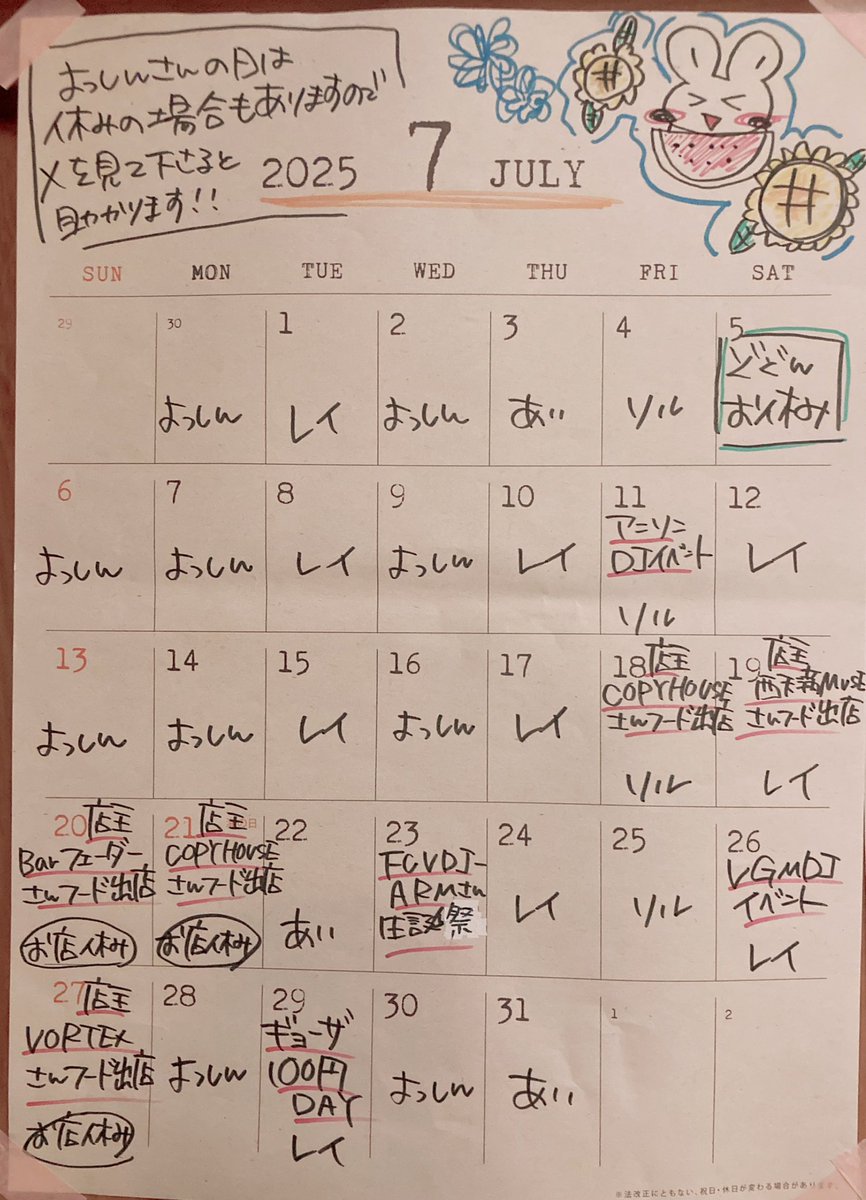 よっしんさんの日は
休みの場合もありますので
Xを見て下さると
助かります!!
2025 7 JULY
SUN MON TUE WED THU FRI SAT
29 30 1 2 3 4 5
よっしん レイ よっしん あい ソル どどん
お休み
6 7 8 9 10 11 12
アニソン
DJイベント
よっしん よっしん レイ よっしん レイ ソル レイ
13 14 15 16 17 18 店主 19 店主
COPYHOUSE 西天満Muse
さんフード出店 さんフード出店
よっしん よっしん レイ よっしん レイ ソル レイ
20 店主 21 店主 22 23 24 25 26
Barフェーダー COPYHOUSE FCVDJ- VGMDJ
さんフード出店 さんフード出店 ARMさん イベント
生誕祭
お店休み お店休み あい レイ ソル レイ
27 店主 28 29 30 31 1 2
VORTEX ギョーザ
さんフード出店 よっしん 100円 よっしん あい
DAY
お店休み レイ
※法改正にともない、祝日・休日が変わる場合があります。